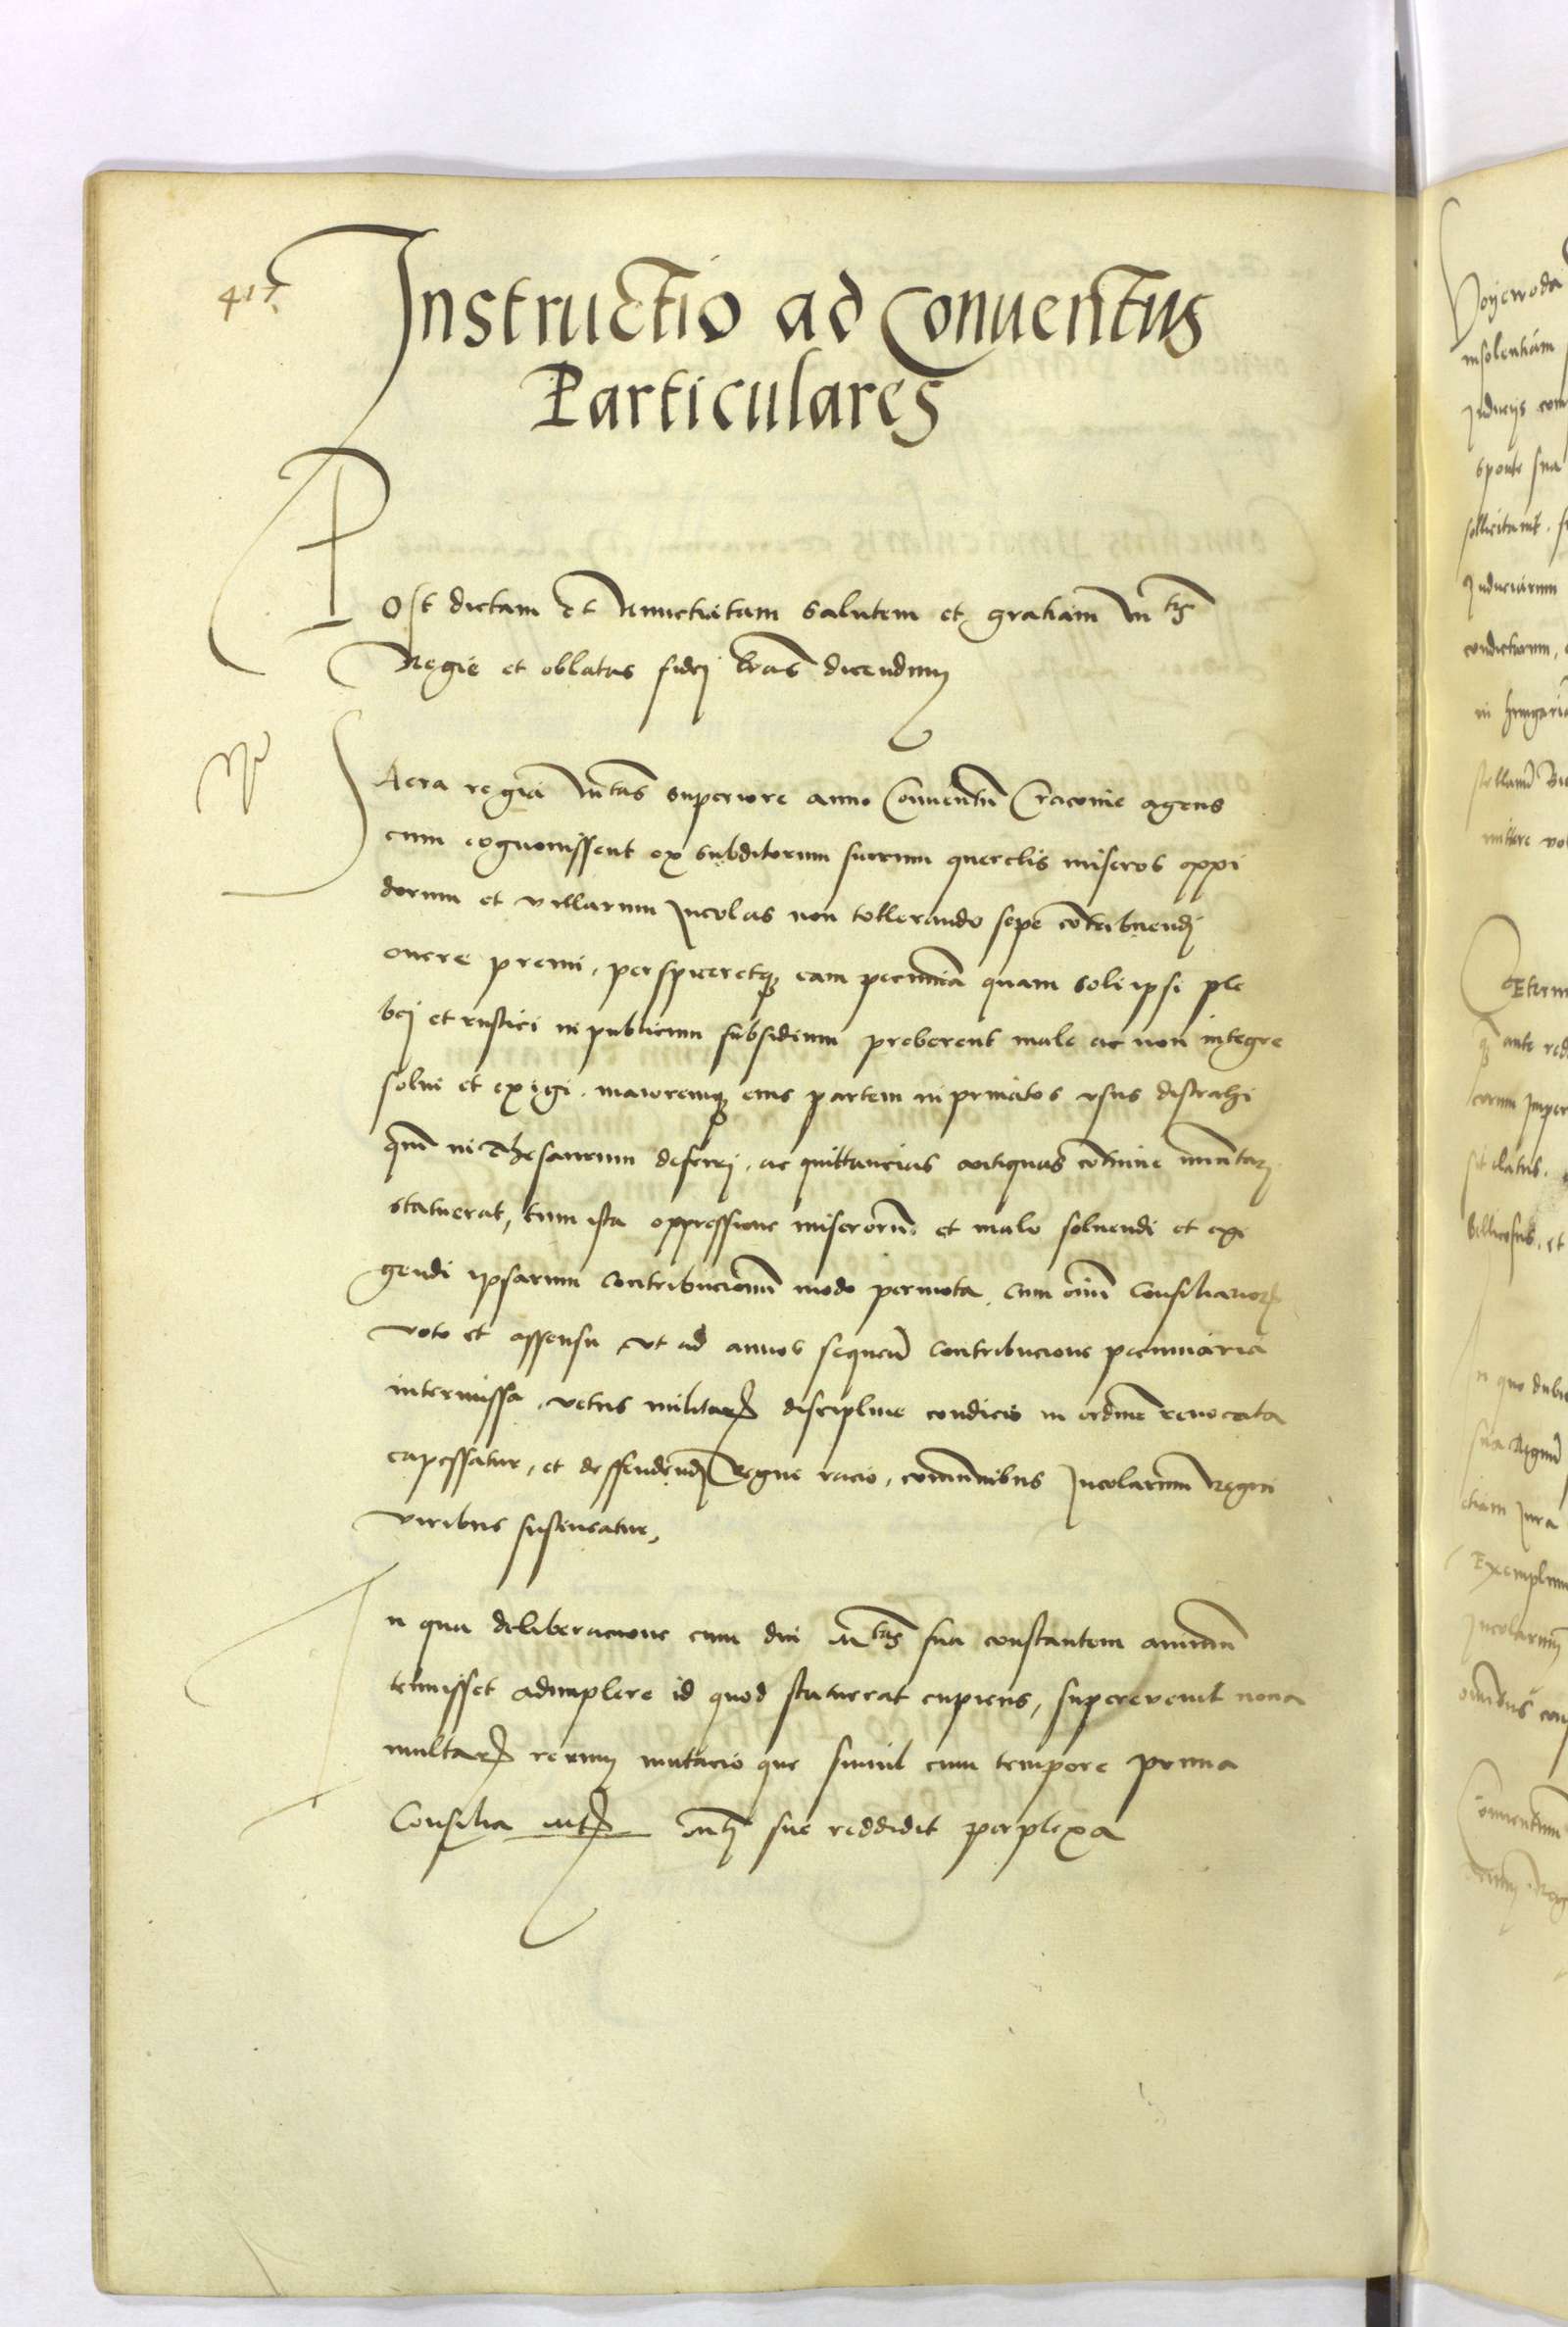 417
Instructio ad Conuentus
Particulares
Post dictam et Nunctiatam salutem et gratiam Mtis
Regie et oblatas fidej lras dicendum
Sacra regia Mtas superiore anno Conuentu Cracouie agens
cum cognouissent ex subditorum suorum querelis miseros oppi
dorum et villarum Incolas non tollerando sepe cotribuendj
onere premi, perspiceretque eam pecunia quam soli ipsi ple
bej et rustici in publicum subsidium preberent male ac non integre
solui et exigi. maioremque eius partem in priuatos vsus distrahi
quam in Thesaurum deferrj. ac quittancias antiquas
statuerat, tum ista oppressione miserorum et malo soluendi et exi
gendi ipsarum Contribucionum modo permota, cum oium Consiliarior
voto et assensu vt ad annos sequen Contribucione pecuniaria
intermissa, vetus militaris discipline condicio in ordine reuocata
capessatur, et deffendendj Regni racio, comunibus Incolarum Regni
viribus sustineatur,
In qua deliberacione cum diu Mtas sua constantem animum
tenuisset adimplere id quod statuerat cupiens, superevenit noua
multar rerum mutacio que simul cum tempore priora
Consilia Mti sue reddidit perplexa
Voyewoda
insolentiam
Induciis com
sponte sua
sollicitant.
Induciarum
condictionum,
in Hungaria
mittere vo
ante red
eorum Imper
sit elatus.
bellicosus, et
In quo dubi
sua Regnu
etiam Iura
Exemplum
Incolarum
omnibus con
Conuentum